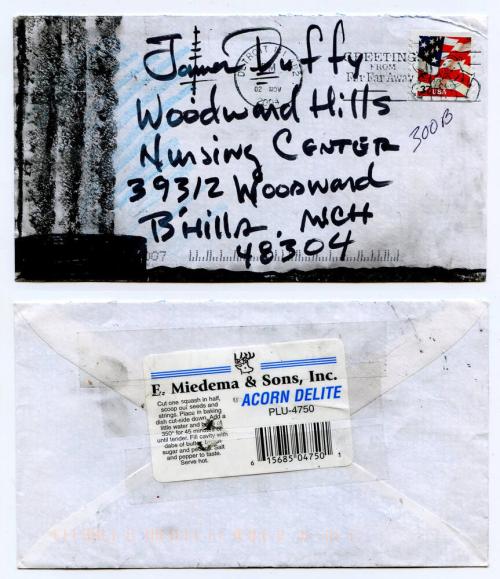 James Duffy
Woodward Hills
Nursing CENTER
39312 Woodward
B'Hills, MCH
48304
300B
DETROIT MI
02 NOV
GREETINGS
FROM
Far Far Away
37
USA
007
E. Miedema & Sons, Inc.
ACORN DELITE
PLU-4750
Cut one squash in half,
scoop out seeds and
strings. Place in baking
dish cut-side down. Add a
little water and
350° for 45
until tender. Fill cavity with
dabs of butter,
sugar and Salt
and pepper to taste.
Serve hot.
6 15685 04750 1